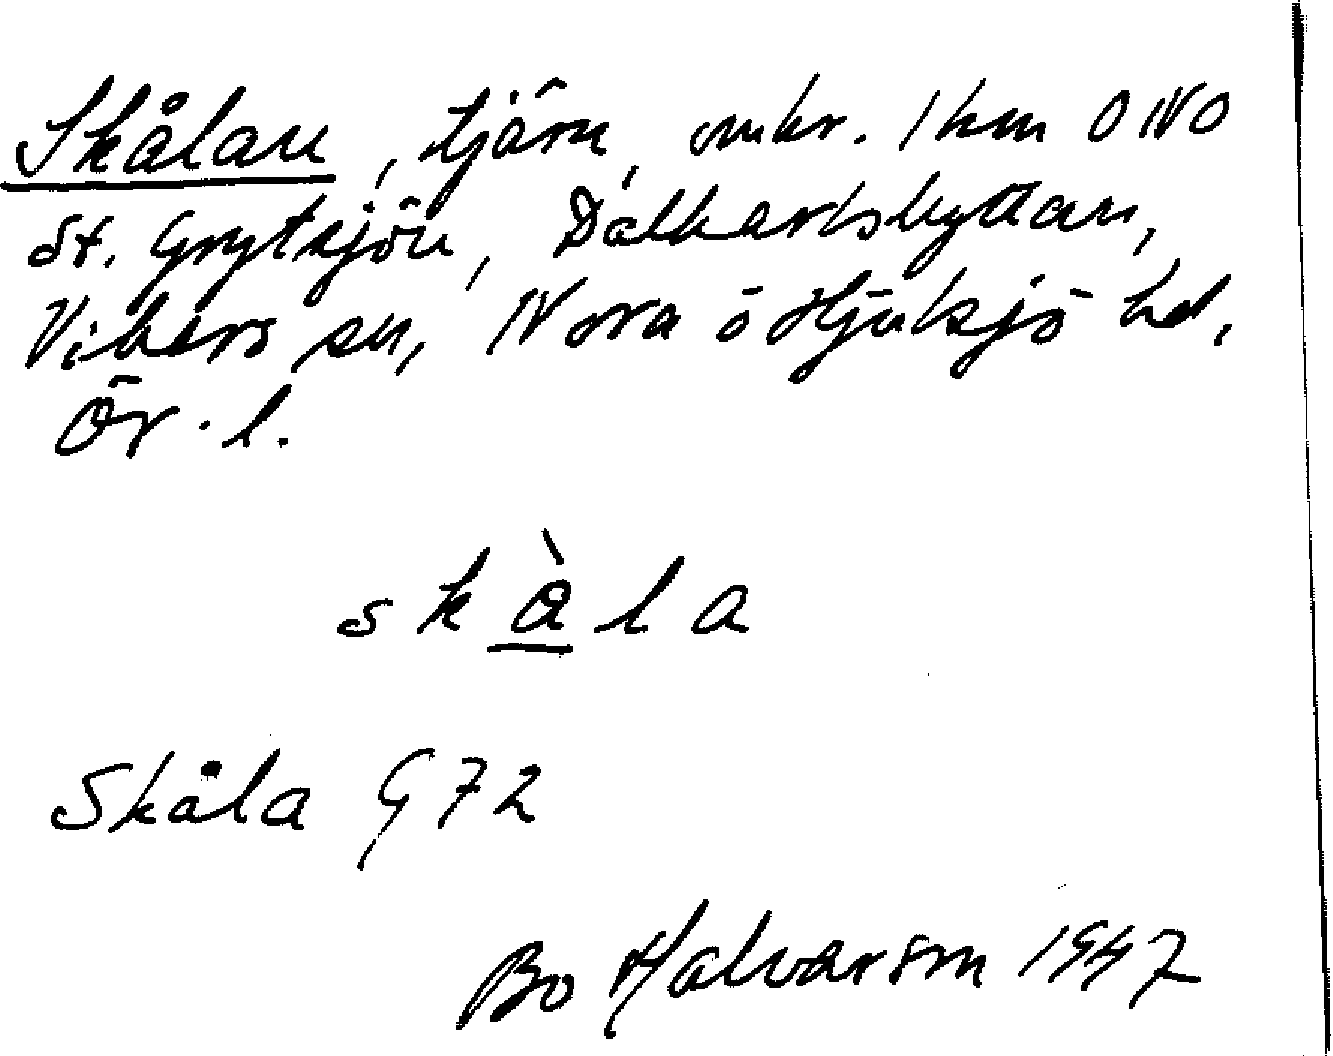 Skålan, tjärn, omkr. 1 km ONO
St. Grytsjön, Dalkarlshyttan,
Vikers sn, Nora ö Hjulsjö hd,
Ör. l.
skàla
Skåla G72
Bo Halvarson 1947